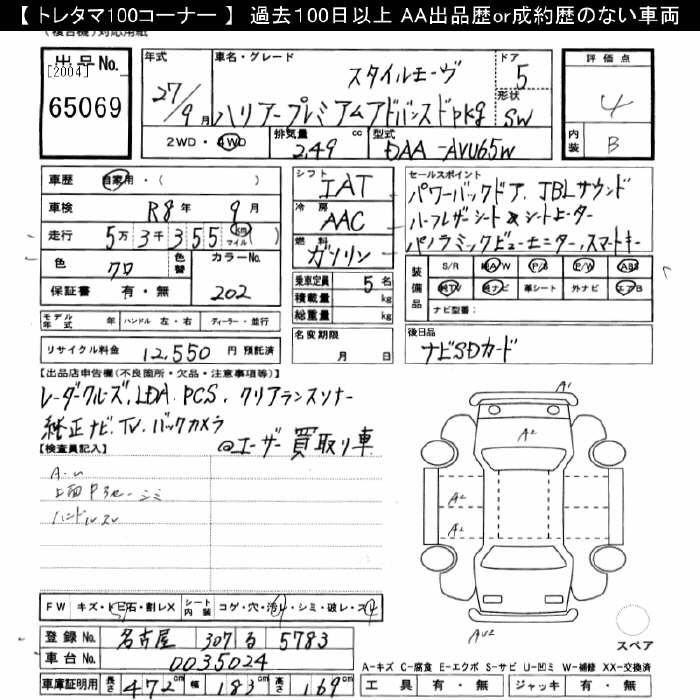 【 トレタマ100コーナー 】 過去100日以上 AA出品歴or成約歴のない車両
(複合機)対応用紙
出品No.
[2004]
65069
年式
27/9月
車名・グレード
スタイルモーヴ
ハリアープレミアムアドバンスドpkg
ドア
5
形状
SW
評価点
4
内装
B
2WD・4WD
排気量
2.49
cc
型式
DAA-AVU65W
車歴
自家用・( )
車検
R8年 9月
走行
5万3千355 km マイル ( )
色
クロ
色替
カラーNo.
202
保証書
有・無
シフト
IAT
冷房
AAC
燃料
ガソリン
乗車定員
5名
積載量
kg
総重量
kg
名変期限
月 日
セールスポイント
パワーバックドア、JBLサウンド
ハーフレザーシート&シートヒーター
パノラミックビューモニター、スマートキー
装備品
S/R
純AW
P/S
P/W
ABS
純TV
純ナビ
革シート
外ナビ
エアB
ナビ型番:
モデル年式 年 ハンドル 左・右 ディーラー・並行
リサイクル料金 12,550 円 預託済
後日品
ナビSDカード
【出品店申告欄(不良箇所・欠品・注意事項等)】
レーダークルーズ、LDA、PCS、クリアランスソナー
純正ナビ、TV、バックカメラ
@ユーザー買取り車
【検査員記入】
ハンドルスレ
A1
A2
A2
A2
FW キズ・トビ石・割レX
シート内装 コゲ・穴・汚レ・シミ・破レ・スレ
登録No. 名古屋 307 る 5783
車台No. 0035024
車庫証明用 長さ 472cm 幅 183cm 高さ 169cm
スペア
A-キズ C-腐食 E-エクボ S-サビ U-凹ミ W-補修 XX-交換済
工具 有・無 ジャッキ 有・無